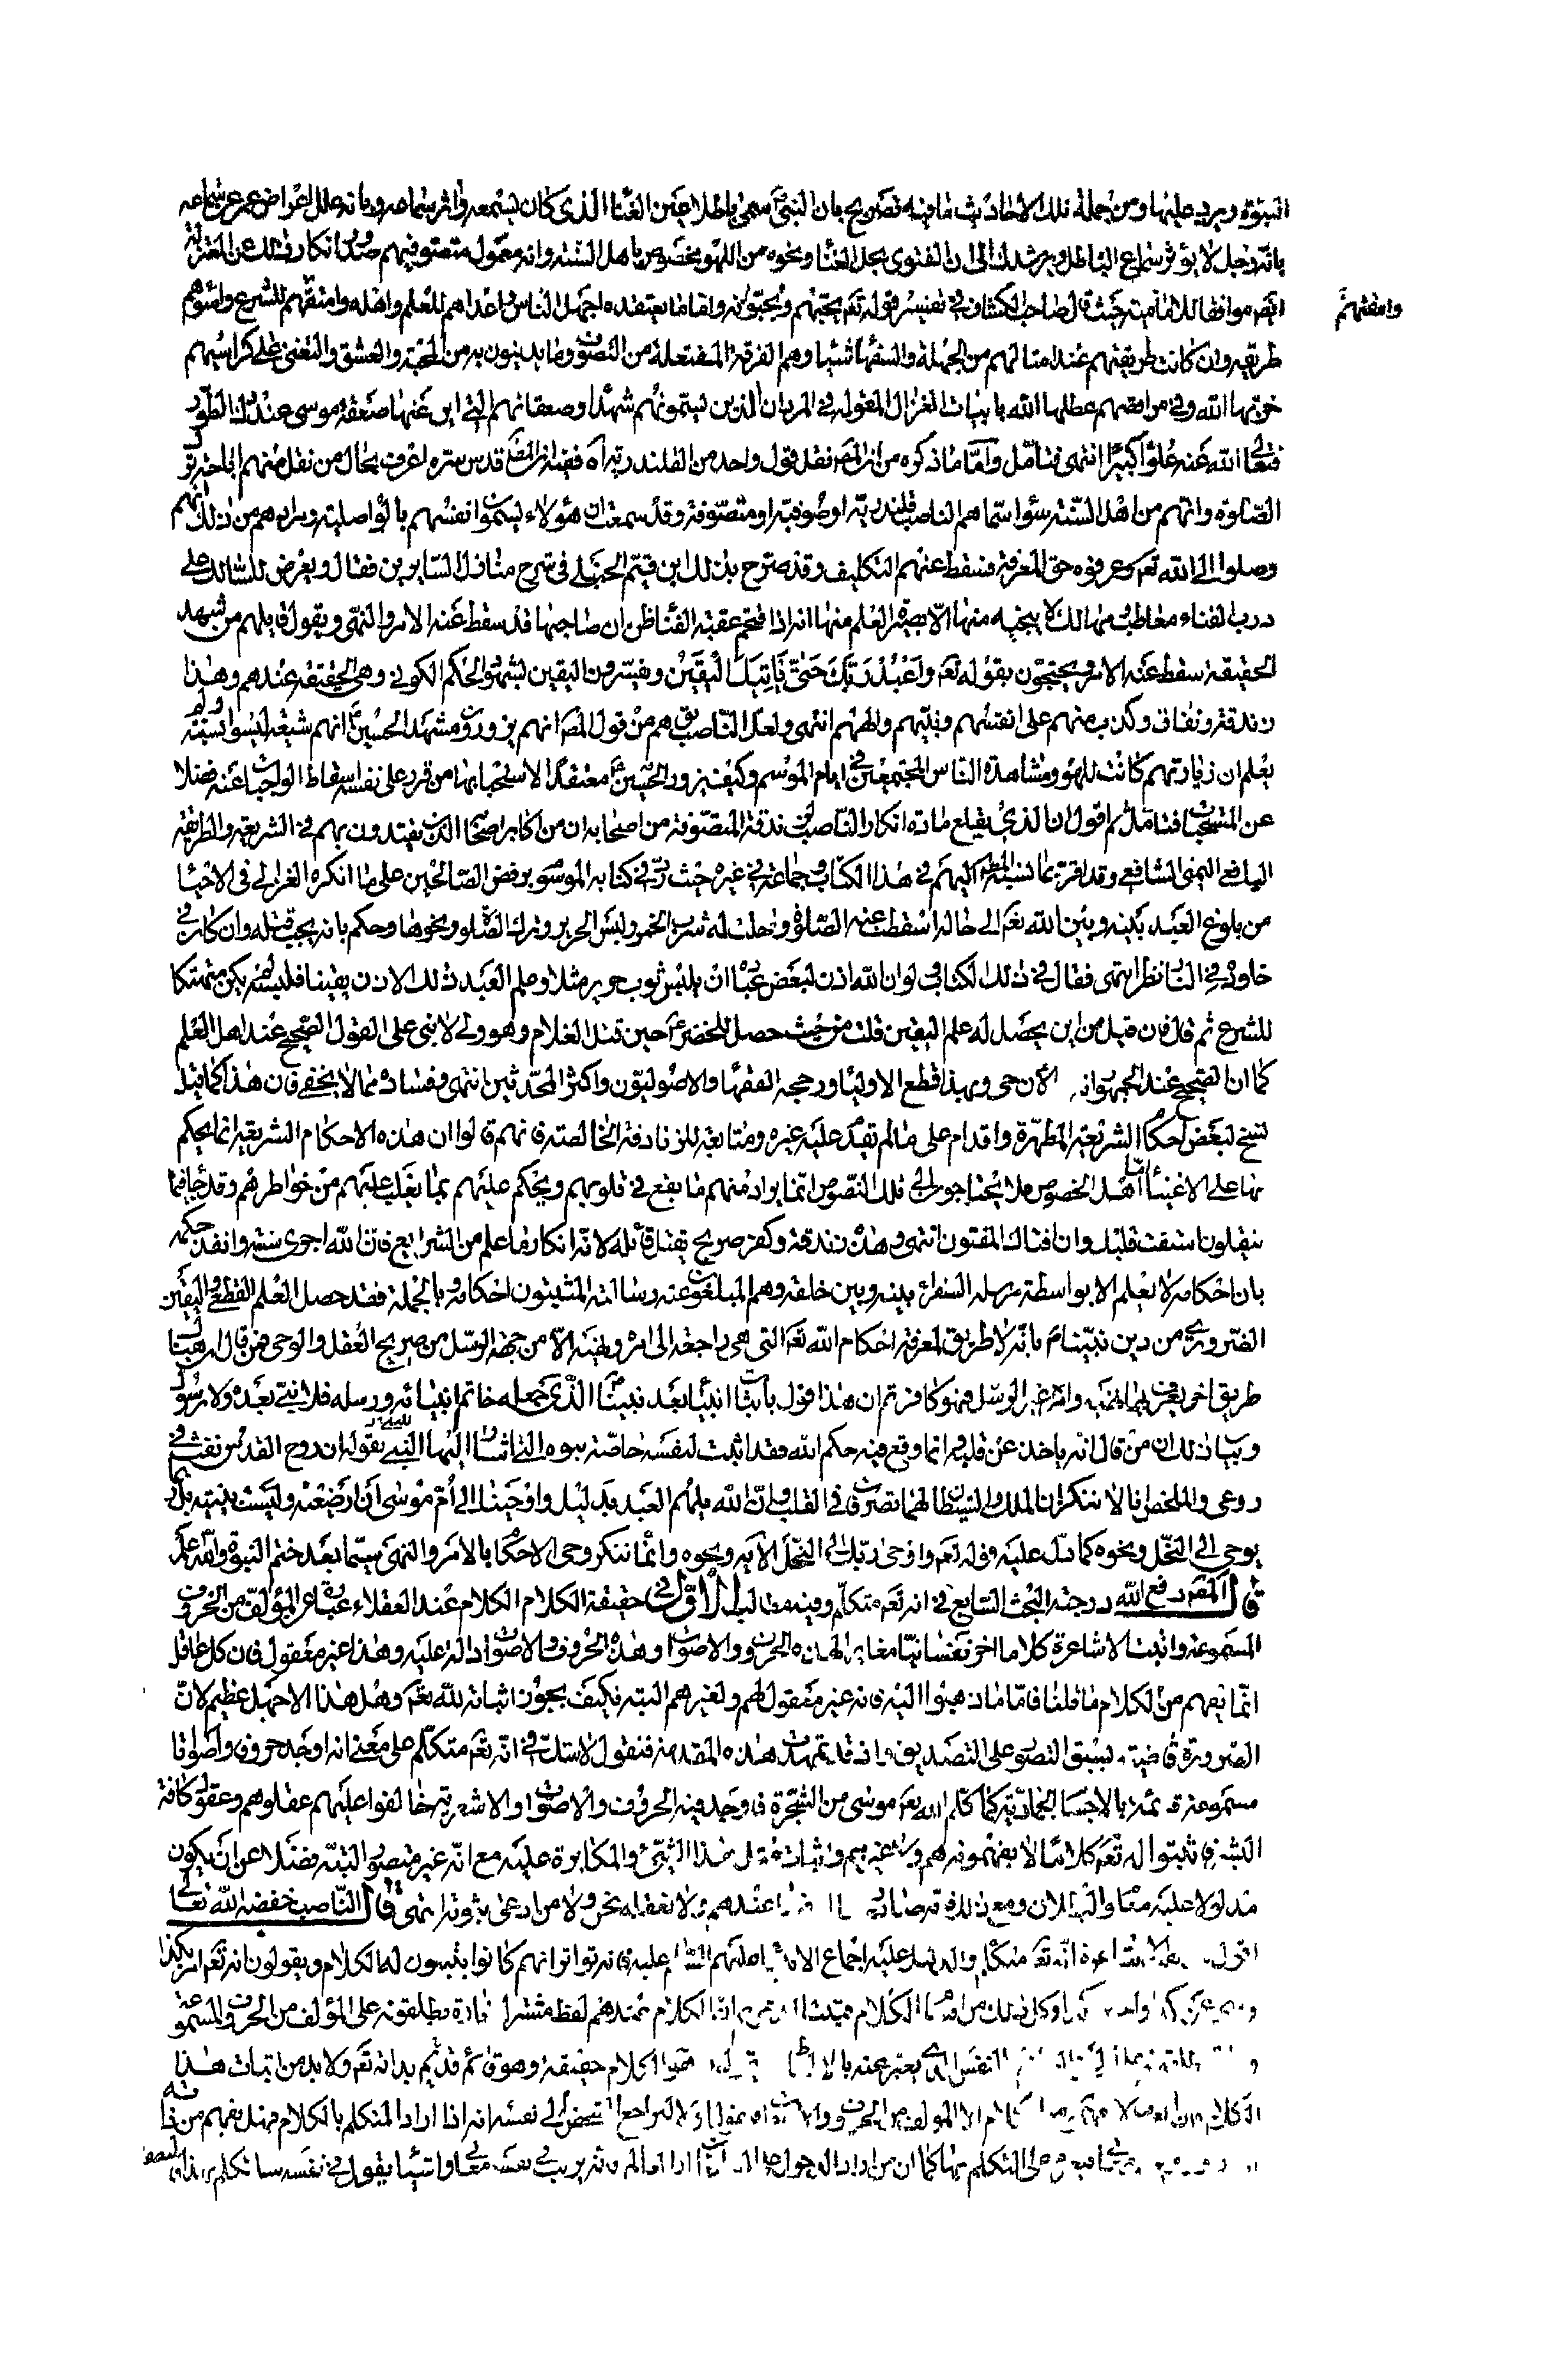 النبوة ويرد عليها ومن جملة تلك الاحاديث ما فيه تصريح بان النبي سمى باطلا حين الغنا الذى كان يستمعه واثر سماعه وبانه علل اعراض عمر عن سماعه
بانه رجل لا يؤثر سماع الباطل ويرشدك الى ان الفتوى بحل الغنا ونحوه من اللهو مخصوص باهل السنة وانه معمول متصوفيهم انكار ذلك عن المعتزلة
ايضا موافقا للامامية حيث قال صاحب الكشاف في تفسير قوله تعم يحبهم ويحبونه واما ما يعتقده اجهل الناس واعداهم للعلم واهله وامقتهم للشرع واسوهم
وامقتهم
طريقه وان كانت طريقتهم عند امثالهم من الجهلة والسفها شيئا وهم الفرقة المفتعلة من التصوف وما يدينون به من المحبة والعشق والتغنى على كراسيهم
خربها الله وفي مراقصهم عطلها الله بابيات الغزل المقوله في المردان الذين يسمونهم شهدا وصعقاتهم التي اين عنها صعقة موسى عند دك الطور
فتعالى الله عنه علوا كبيرا انتهى فتامل واما ما ذكره من ان المص نقل قول واحد من القلندرية اه ففيه ان المص قدس سره اعرف بحال من نقل منهم
الصلوة وانهم من اهل السنة سوا سماهم الناصب قلندرية او صوفية او متصوفة وقد سمعت ان هؤلاء يسمون انفسهم بالواصلية ومرادهم من ذلك انهم
وصلوا الى الله تعم وعرفوه حق المعرفة فسقط عنهم التكليف وقد صرح بذلك ابن قيم الحنبلي في شرح منازل السايرين فقال ويعرض للسالك على
درب الفناء معاطب ومهالك لا ينجيه منها الا بصيرة العلم منها انه اذا اقتحم عقبة الفنا ظن ان صاحبها قد سقط عنه الامر والنهى ويقول قايلهم من شهد
الحقيقة سقط عنه الامر ويحتجون بقوله تعم واعبد ربك حتى ياتيك اليقين ويفسرون اليقين بشهود الحكم الكوني وهى الحقيقة عندهم وهذا
زندقة ونفاق وكذب منهم على انفسهم ونبيهم والههم انتهى ولعل الناصب توهم من قول المص انهم يزورون مشهد الحسين انهم شيعة ليسوا بسنية ولم
يعلم ان زيارتهم كانت للهو ومشاهدة الناس المجتمعين في ايام الموسم وكيف يزور الحسين معتقدا لاستحبابها من قرر على نفسه اسقاط الواجبات عنه فضلا
عن المستحبات فتامل ثم اقول ان الذى يقلع مادة انكار الناصب زندقة المتصوفة من اصحابه ان من اكابر اصحابه الذين يقتدون بهم في الشريعة والطريقة
اليافعي اليمنى الشافعي وقد اقر بما نسبه المص اليهم في هذا الكتاب وجماعة في غيره حيث رد في كتابه الموسوم بروض الصالحين على ما انكره الغزالى فى الاحيا
من بلوغ العبد بينه وبين الله تعم الى حالة اسقطت عنه الصلوة واحلت له شرب الخمر ولبس الحرير وترك الصلوة ونحوها وحكم بانه يجب قتله وان كان في
خلوده في النار نظر انتهى فقال في ذلك الكتاب لو ان الله اذن لبعض عباده ان يلبس ثوب حرير مثلا وعلم العبد ذلك الاذن يقينا فلبسه لم يكن منتهكا
للشرع ثم قال فان قيل من اين يحصل له علم اليقين قلت من حيث حصل للخضر حين قتل الغلام وهو ولى لا نبى على القول الصحيح عند اهل العلم
كما ان الصحيح عند الجمهور انه الان حى وبهذا قطع الاوليا ورجحه الفقها والاصوليون واكثر المحدثين انتهى وفساده مما لا يخفى فان هذا كما قيل
نسخ لبعض احكام الشريعة المطهرة واقدام على ما لم يقدم عليه غيره ومتابعة للزنادقة الخالصة فانهم قالوا ان هذه الاحكام الشريعة انما يحكم
بها على الاغنيا اما اهل الخصوص فلا يحتاجون الى تلك النصوص انما يراد منهم ما يقع في قلوبهم ويحكم عليهم بما يغلب عليهم من خواطرهم وقد جا فيما
ينقلون استفت قلبك وان افتاك المفتون انتهى وهذه زندقة وكفر صريح يقتل قائله لانه انكار لما علم من الشرايع فان الله اجرى سنته وانفذ حكمه
بان احكامه لا تعلم الا بواسطة رسله السفراء بينه وبين خلقه وهم المبلغون عنه رسالته المثبتون احكامه وبالجملة فقد حصل العلم القطعى واليقين
الضرورى من دين نبينا ص بانه لا طريق لمعرفة احكام الله تعم التى هى راجعة الى امره ونهيه الا من جهة الرسل من صريح العقل والوحى فمن قال ان هناك
طريق اخر يعرف بها نهيه وامره غير الرسل فهو كافر ثم ان هذا قول باثبات انبيا بعد نبينا الذى جعله خاتم انبيائه ورسله فلا نبي بعده ولا رسول
وبيان ذلك ان من قال انه ياخذ عن قلبه وانما وقع فيه حكم الله فقد اثبت لنفسه خاصة نبوة التى اشار اليها النبي بقوله ان روح القدس نفث في
روعى والملخص انا لا ننكر ان الملك والشيطان لهما تصرفات في القلب وان الله يلهم العبد بدليل واوحينا الى ام موسى ان ارضعيه وليست بنبية بل
يوحى الى النحل ونحوه كما دل عليه قوله تعم واوحى ربك الى النحل الاية ونحوه وانما ننكر وحى الاحكام بالامر والنهى سيما بعد ختم النبوة والله اعلم
قال المص رفع الله درجته البحث السابع في انه تعم متكلم وفيه مطالب الاول في حقيقة الكلام الكلام عند العقلاء عبارة عن المؤلف من الحروف
المسموعة واثبت الاشاعرة كلاما اخر نفسانيا مغايرا لهذه الحروف والاصوات وهذه الحروف والاصوات دالة عليه وهذا غير معقول فان كل عاقل
انما يفهم من الكلام ما قلنا فاما ما ذهبوا اليه فانه غير معقول لهم ولغيرهم البتة فكيف يجوز اثباته لله تعم وهل هذا الا جهل عظيم لان
الضرورة قاضية بسبق التصور على التصديق واذ قد تمهدت هذه المقدمة فنقول لا شك في انه تعم متكلم على معنى انه اوجد حروفا واصواتا
مسموعة قائمة بالاجسام الجمادية كما كلم الله تعم موسى من الشجرة فاوجد فيه الحروف والاصوات والاشعرية خالفوا عليهم عقلوهم وعقول كافة
البشر فاثبتوا له تعم كلاما لا يفهمونه هم ولا غيرهم واثبات مثل هذا الشيئ والمكابرة عليه مع انه غير متصور البتة فضلا عن ان يكون
مدلولا عليه معلوم البطلان ومع ذلك فانه عندهم ولا نعقله نحن ولا من ادعى ثبوته انتهى قال الناصب خفضه الله تعالى
اقول الاشاعرة انه تعم متكلم والدليل عليه اجماع الانبياء عليهم السلام عليه فانه تواتر انهم كانوا يثبتون له الكلام ويقولون انه تعم امر بكذا
ونهى عن كذا الكلام الكلام عندهم لفظ مشترك تارة يطلقونه على المؤلف من الحروف المسموعة
النفس الذي يعبر عنه بالالفاظ الكلام حقيقة وهو قائم قديم بذاته تعم ولا بد من اثبات هذا
الكلام الا المؤلف من الحروف والاصوات ليراجع الشخص الى نفسه انه اذا اراد المتكلم بالكلام فهل يفهم من ذاته
على التكلم بها كما ان من اراد الدخول على السلطان فانه يرتب في نفسه معاني واشيا يقول في نفسه ساتكلم بهذا